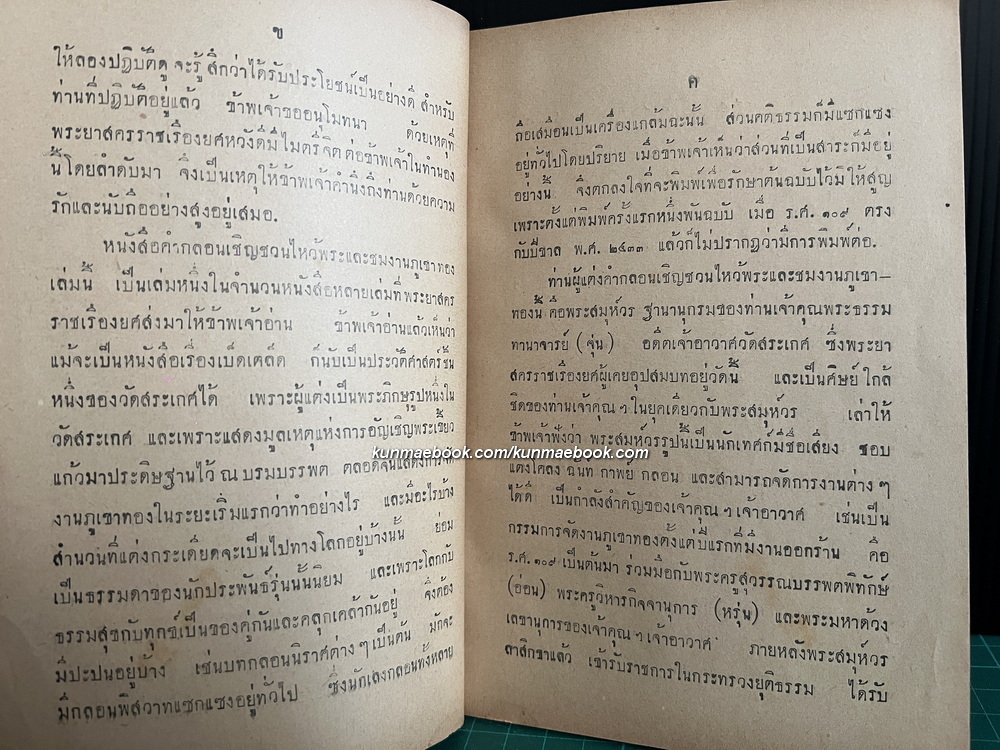 ข
ให้ลองปฏิบัติดู จะรู้สึกว่าได้รับประโยชน์เป็นอย่างดี สำหรับ
ท่านที่ปฏิบัติอยู่แล้ว ข้าพเจ้าขออนุโมทนา ด้วยเหตุที่
พระยาสครราชเรืองยศหวังดีมีไมตรีจิตต่อข้าพเจ้าในทำนอง
นี้โดยลำดับมา จึงเป็นเหตุให้ข้าพเจ้าคำนึงถึงท่านด้วยความ
รักและนับถืออย่างสูงอยู่เสมอ.
หนังสือคำกลอนเชิญชวนไหว้พระและชมงานภูเขาทอง
เล่มนี้ เป็นเล่มหนึ่งในจำนวนหนังสือหลายเล่มที่พระยาสคร
ราชเรืองยศส่งมาให้ข้าพเจ้าอ่าน ข้าพเจ้าอ่านแล้วเห็นว่า
แม้จะเป็นหนังสือเรื่องเบ็ดเตล็ด ก็นับเป็นประวัติศาสตร์ชิ้น
หนึ่งของวัดสระเกศได้ เพราะผู้แต่งเป็นพระภิกษุรูปหนึ่งใน
วัดสระเกศ และเพราะแสดงมูลเหตุแห่งการอัญเชิญพระเขี้ยว
แก้วมาประดิษฐานไว้ ณ บรมบรรพต ตลอดจนแสดงการจัด
งานภูเขาทองในระยะเริ่มแรกว่าทำอย่างไร และมีอะไรบ้าง
สำนวนที่แต่งกระเดียดจะเป็นไปทางโลกอยู่บ้างนั้น ย่อม
เป็นธรรมดาของนักประพันธ์รุ่นนั้นนิยม และเพราะโลกกับ
ธรรมสุขกับทุกข์เป็นของคู่กันและคลุกเคล้ากันอยู่ จึงต้อง
มีปะปนอยู่บ้าง เช่นบทกลอนนิราศต่าง ๆ เป็นต้น มักจะ
มีกลอนพิสวาทแซกแซงอยู่ทั่วไป ซึ่งนักเลงกลอนทั้งหลาย
ค
ถือเสมือนเป็นเครื่องแกล้มฉะนั้น ส่วนคติธรรมก็มีแซกแซง
อยู่ทั่วไปโดยปริยาย เมื่อข้าพเจ้าเห็นว่าส่วนที่เป็นสาระก็มีอยู่
อย่างนี้ จึงตกลงใจที่จะพิมพ์เพื่อรักษาต้นฉบับไว้มิให้สูญ
เพราะตั้งแต่พิมพ์ครั้งแรกหนึ่งพันฉบับ เมื่อ ร.ศ. ๑๐๙ ตรง
กับปีขาล พ.ศ. ๒๔๓๓ แล้วก็ไม่ปรากฏว่ามีการพิมพ์ต่อ.
ท่านผู้แต่งคำกลอนเชิญชวนไหว้พระและชมงานภูเขา—
ทองนี้ คือพระสมุห์วร ฐานานุกรมของท่านเจ้าคุณพระธรรม
ทานาจารย์ (จุ่น) อดีตเจ้าอาวาศวัดสระเกศ ซึ่งพระยา
สครราชเรืองยศผู้เคยอุปสมบทอยู่วัดนี้ และเป็นศิษย์ใกล้
ชิดของท่านเจ้าคุณ ๆ ในยุคเดียวกับพระสมุห์วร เล่าให้
ข้าพเจ้าฟังว่า พระสมุห์วรรูปนี้เป็นนักเทศก์มีชื่อเสียง ชอบ
แต่งโคลง ฉันท์ กาพย์ กลอน และสามารถจัดการงานต่าง ๆ
ได้ดี เป็นกำลังสำคัญของเจ้าคุณ ๆ เจ้าอาวาศ เช่นเป็น
กรรมการจัดงานภูเขาทองตั้งแต่ปีแรกที่มีงานออกร้าน คือ
ร.ศ. ๑๐๙ เป็นต้นมา ร่วมมือกับพระครูสุวรรณบรรพตพิทักษ์
(อ่อน) พระครูวิหารกิจจานุการ (หรุ่น) และพระมหาด้วง
เลขานุการของเจ้าคุณ ๆ เจ้าอาวาศ ภายหลังพระสมุห์วร
ลาสิกขาแล้ว เข้ารับราชการในกระทรวงยุติธรรม ได้รับ
kunmaebook.com/kunmaebook.com